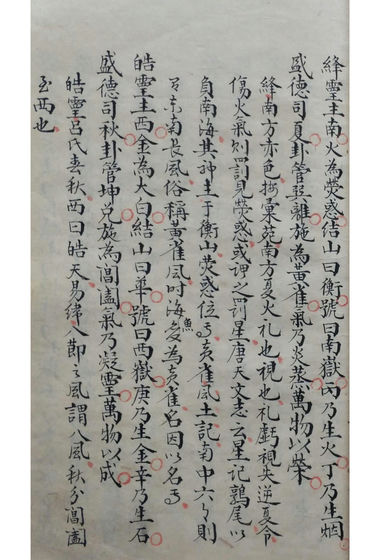 絳靈主南火為熒惑結山曰衡號曰南嶽丙乃生火丁乃生烟
盛德司夏卦管巽離施為黃雀氣乃炎蒸萬物以榮
絳南方赤色按彙苑南方夏火礼也視也礼虧視失逆夏令
傷火氣則罰見熒惑或謂之罰星唐天文志之星記鶉尾以
負南海其神主于衡山熒惑位焉黃雀風土記南中六月則
有東南長風俗稱黃雀風时海魚變為黃雀名因以名焉
皓靈主西金為太白結山曰華號曰西嶽庚乃生金辛乃生石
盛德司秋卦管坤兑施為閶闔氣乃凝靈萬物以成
皓靈呂氏春秋西曰皓天易緯八節之風謂八風秋分閶闔
至西也